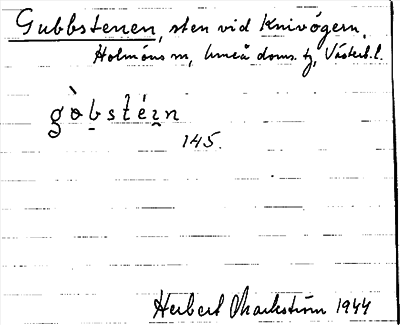 Gubbstenen, sten vid Knivögern,
Holmöns sn, Umeå doms. tg, Västerb. l.
gòbsténn
145.
Herbert Markström 1944